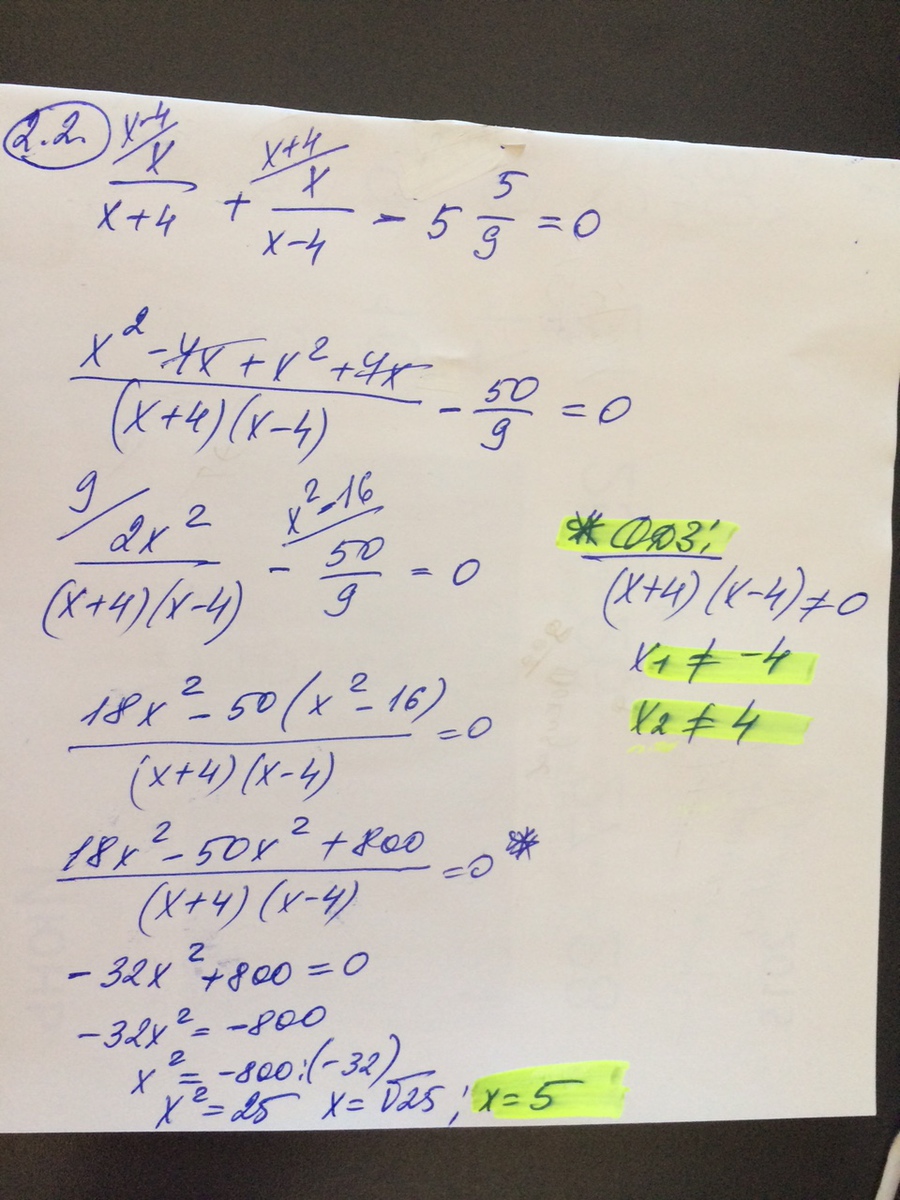 2.2. x-4/ x/(x+4) + x+4/ x/(x-4) - 5 5/9 = 0
(x² - 4x + x² + 4x)/((x+4)(x-4)) - 50/9 = 0
9/ 2x²/((x+4)(x-4)) - x²-16/ 50/9 = 0
(18x² - 50(x² - 16))/((x+4)(x-4)) = 0
(18x² - 50x² + 800)/((x+4)(x-4)) = 0 *
-32x² + 800 = 0
-32x² = -800
x² = -800:(-32)
x² = 25 x = √25; x = 5
* ОДЗ:
(x+4)(x-4) ≠ 0
x₁ ≠ -4
x₂ ≠ 4